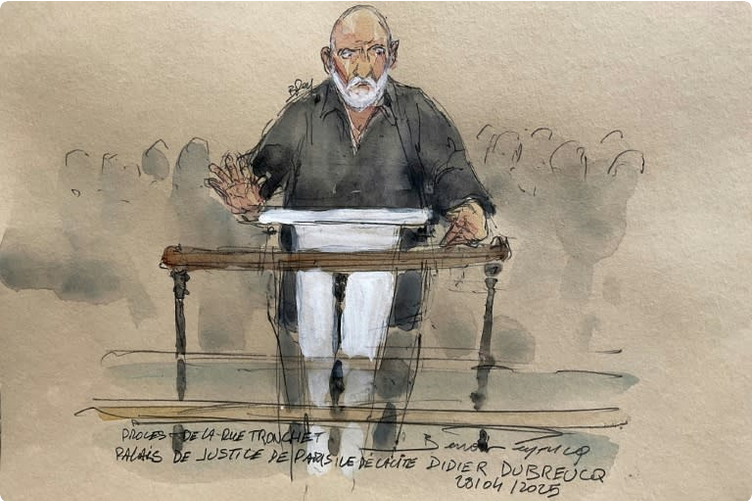 PROCES - DE LA RUE TRONCHET
Benoit Peyrucq
PALAIS DE JUSTICE DE PARIS ILE DE LA CITE DIDIER DUBREUCQ
28/04/2025